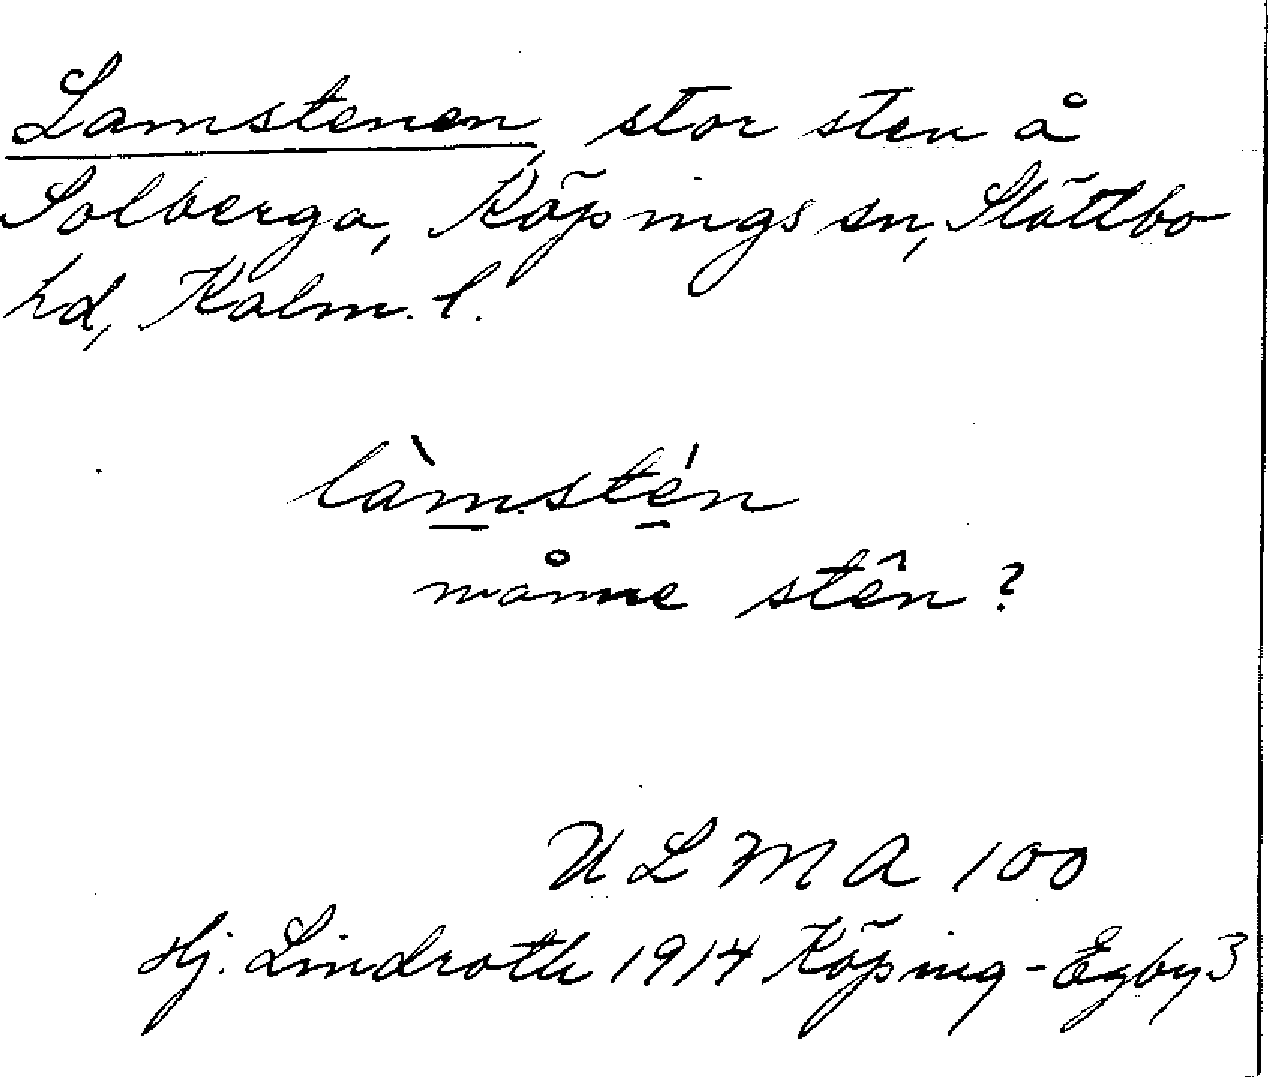 Lamstenen, stor sten å
Solberga, Köpings sn, Slättbo
hd, Kalm. l.
làmstén
månne stên?
ULMA 100
Hj. Lindroth 1914 Köping-Egby 3